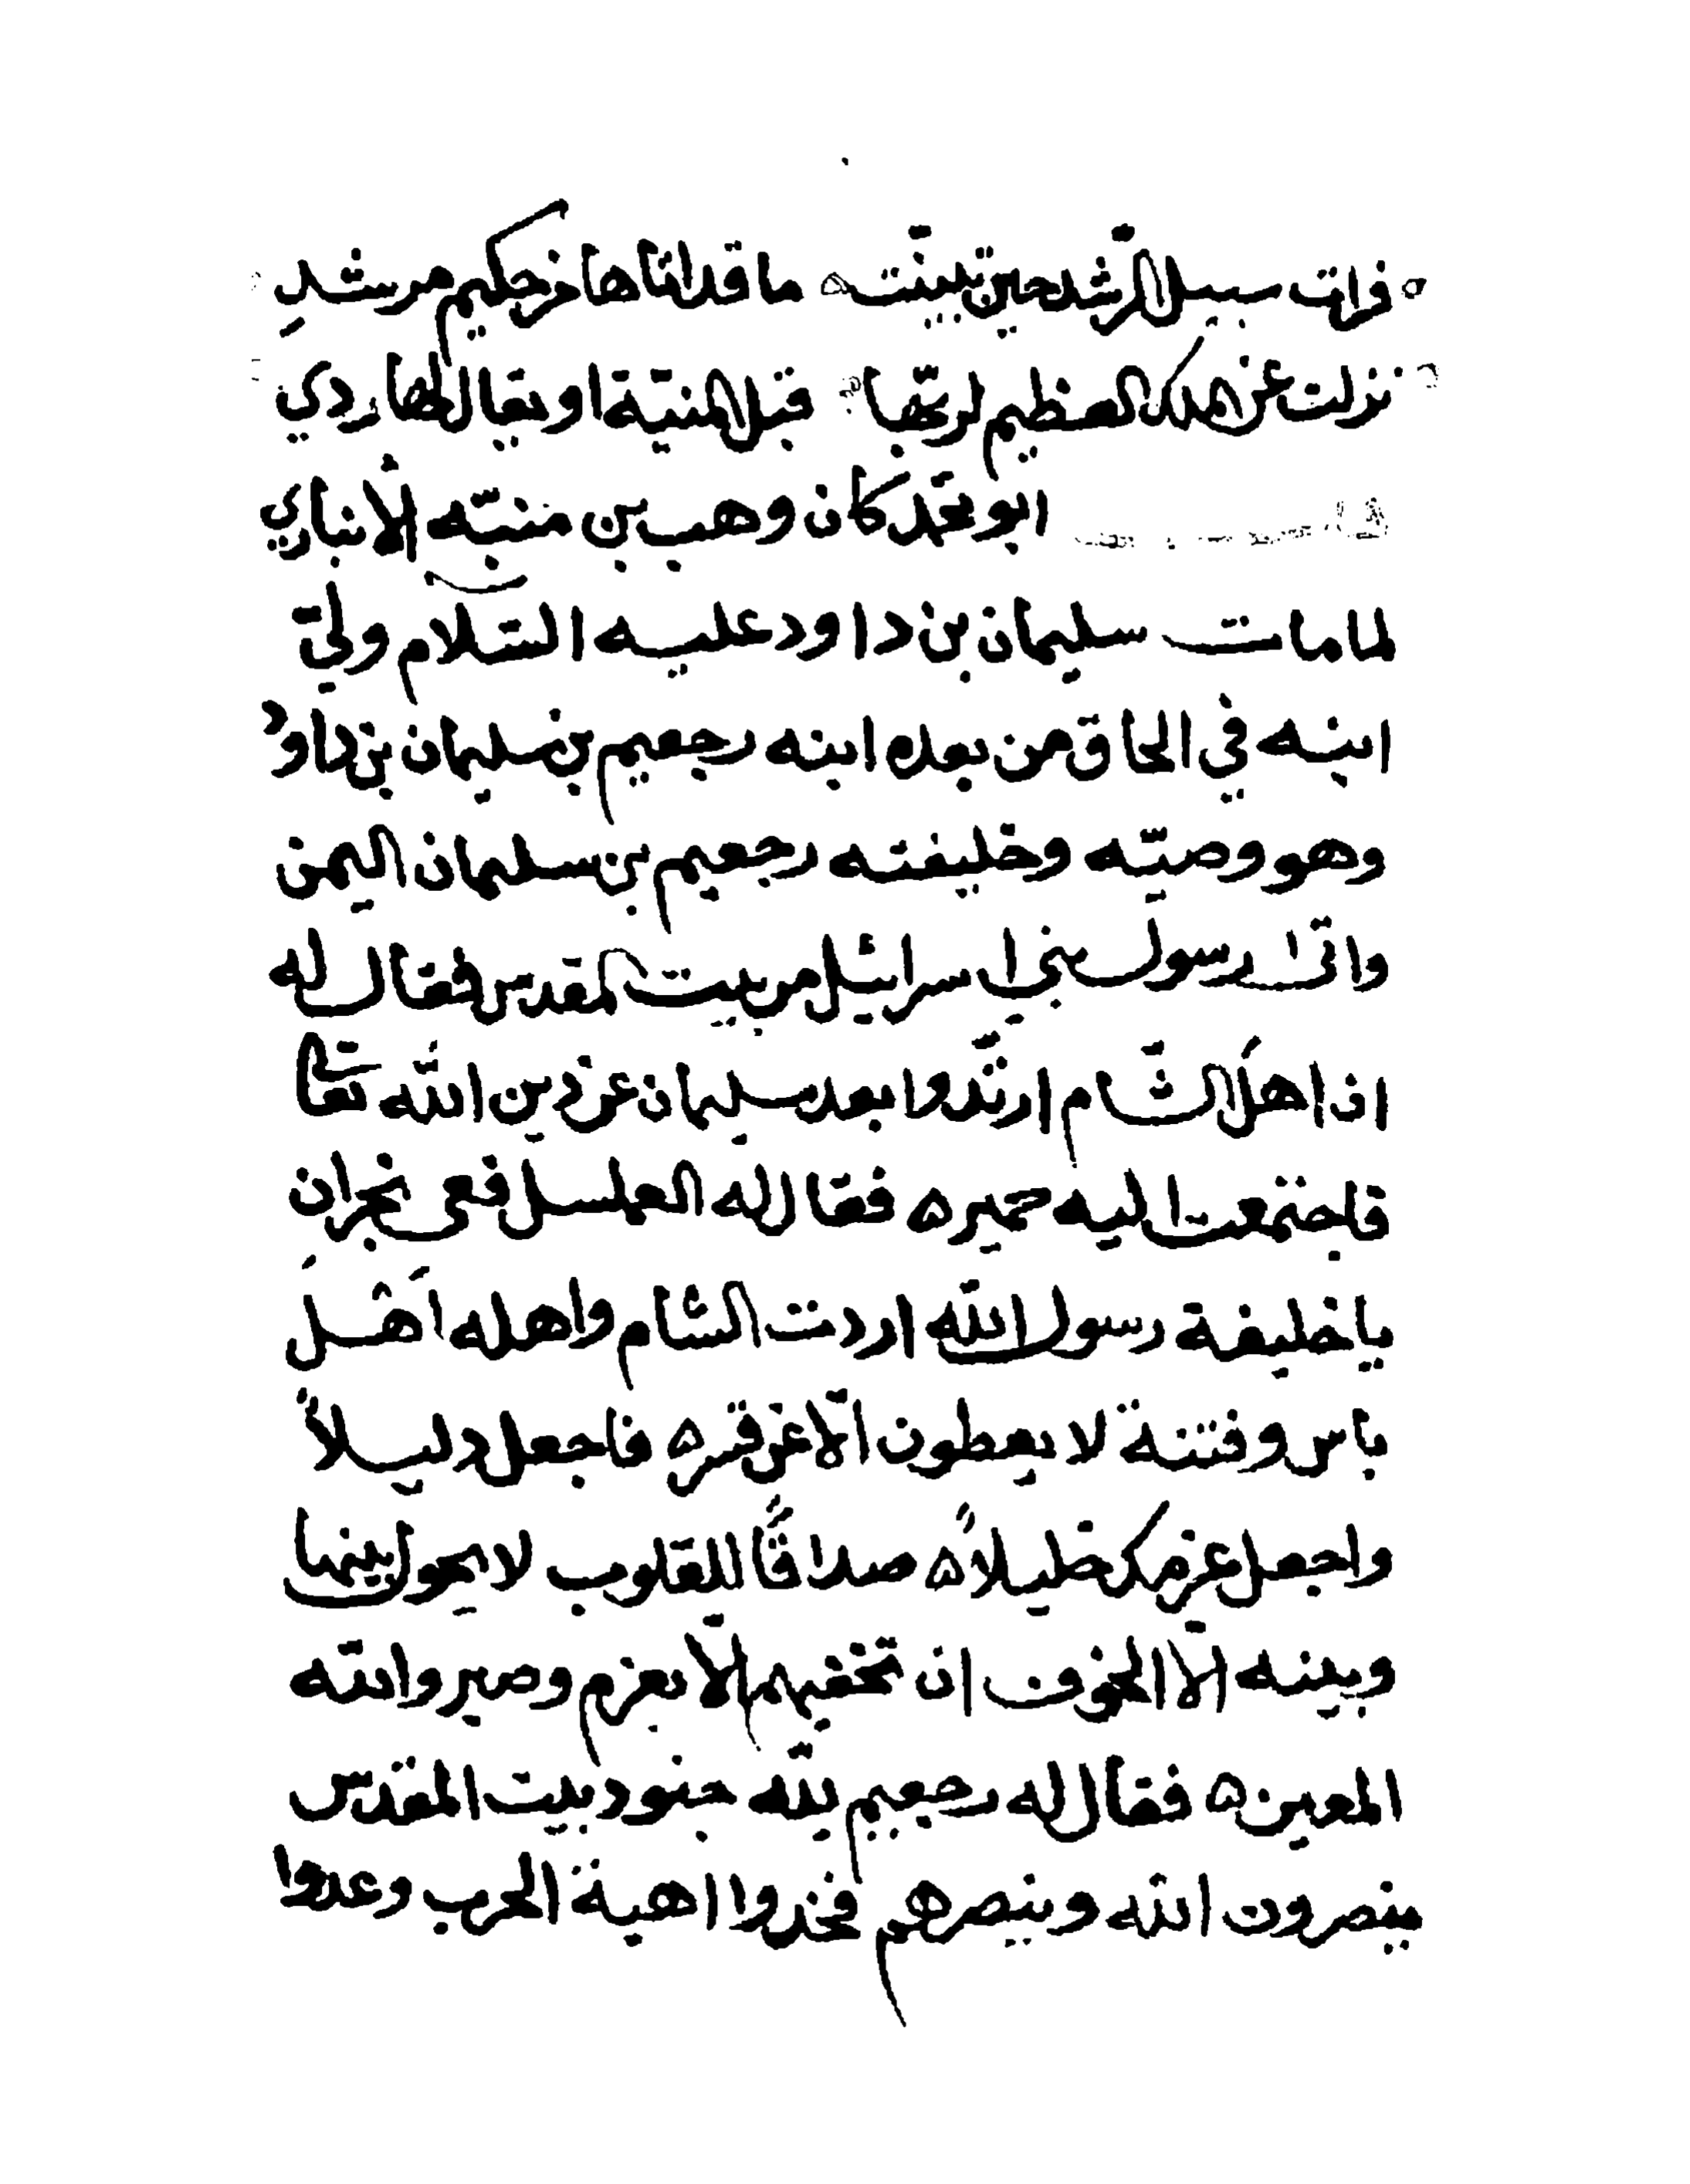 فرات سبيل الرّشد حين تبينّت ه ما قد اتاها من حكيم مرشدِ
نزلت عن الملك العظيم لربّها قبل المنيّة او يقال لها ردي
ابو محمّد كان وهب بن منبّه الأنباري
لما مات سليمان بن داود عليه السّلام وليّ
ابنه في الحاق من بعده ابنه رجعيم بن سليمان بن داود
وهو وصيّه وخليفته رجعيم بن سليمان اليمن
واتى رسول بني اسرائيل من بيت المقدس فقال له
ان اهل الشّام ارتّدوا بعد سليمان عن دين الله تعا
فاجتمعت اليه حمير ه فقال له العملسل فعى نجران
يا خليفة رسول الله اردت الشام واهله اهل
باس وفتنة لا يعطون الّا عن قر ه فاجعل دليلاً
واجعل عزمك خليلاً ه صداقًا للقلوب لا يحول بينها
وبينه الّا الخوف ان تخفيهم الّا بعزم وصبر والله
المعين ه فقال له رجعيم لله جنود بيت المقدس
ينصرون الله وينصرهم فخذوا اهبة الحرب وعدوا